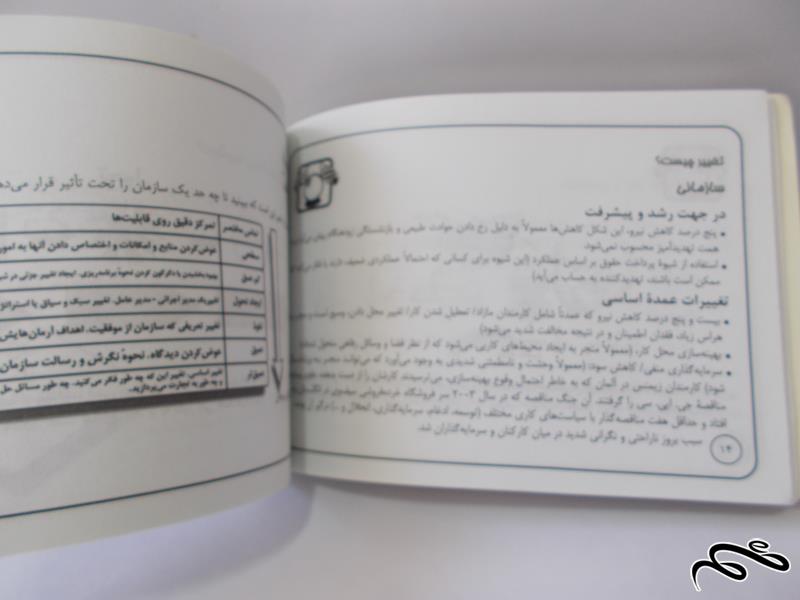 تغییر چیست؟
سازمانی
در جهت رشد و پیشرفت
پنج درصد کاهش نیرو، این شکل کاهش‌ها معمولاً به دلیل رخ دادن حوادث طبیعی و بازنشستگی زودهنگام
همت تهدیدآمیز محسوب نمی‌شود.
استفاده از شیوهٔ پرداخت حقوق بر اساس عملکرد (این شیوه برای کسانی که احتمالاً عملکردی ضعیف دارند
ممکن است باشند، تهدیدکننده به حساب می‌آید)
تغییرات عمدهٔ اساسی
بیست و پنج درصد کاهش نیرو که عمدتاً شامل کارمندان مازاد/ تعطیل شدن کار/ تغییر محل دادن، وسیع است و
هراس زیاد فقدان اطمینان و در نتیجه مخالفت شدید می‌شود)
بهینه‌سازی محل کار، (معمولاً منجر به ایجاد محیط‌های کاری می‌شود که از نظر فضا و وسائل رفاهی متحول
سرمایه‌گذاری منفی/ کاهش سود: (معمولاً وحشت و نامطمئنی شدیدی به وجود می‌آورد که می‌توانند منجر به
شود) کارمندان زیمنس در آلمان که به خاطر احتمال وقوع بهینه‌سازی، می‌ترسیدند کارشان را از دست بدهند
مناقصهٔ جی. ایی. سی را گرفتند. آن جنگ مناقصه که در سال ۲۰۰۳ سر فروشگاه خرده‌فروشی سیفوی در
افتاد و حداقل هفت مناقصه‌گذار با سیاست‌های کاری مختلف (توسعه، ادغام، سرمایه‌گذاری، انحلال و ..) درگیر آن بودند
سبب بروز ناراحتی و نگرانی شدید در میان کارکنان و سرمایه‌گذاران شد.
۱۴
است که ببینید تا چه حد یک سازمان را تحت تأثیر قرار می‌دهد
تمرکز دقیق روی قابلیت‌ها
سطحی
عوض کردن منابع و امکانات و اختصاص دادن آنها به امور
کم عمق
بهبود بخشیدن یا دگرگون کردن نحوهٔ برنامه‌ریزی. ایجاد تغییر جزئی در
ایجاد تحول
تغییر یک مدیر اجرائی - مدیر عامل. تغییر سبک و سیاق یا استراتژی
نفوذ
تغییر تعریفی که سازمان از موفقیت. اهداف آرمان‌هایش
عمیق
عوض کردن دیدگاه. نحوهٔ نگرش و رسالت سازمان
عمیق‌تر
تغییر اساسی. تغییر این که چه طور فکر می‌کنید. چه طور مسائل حل
و چه طور به تجارت می‌پردازید.